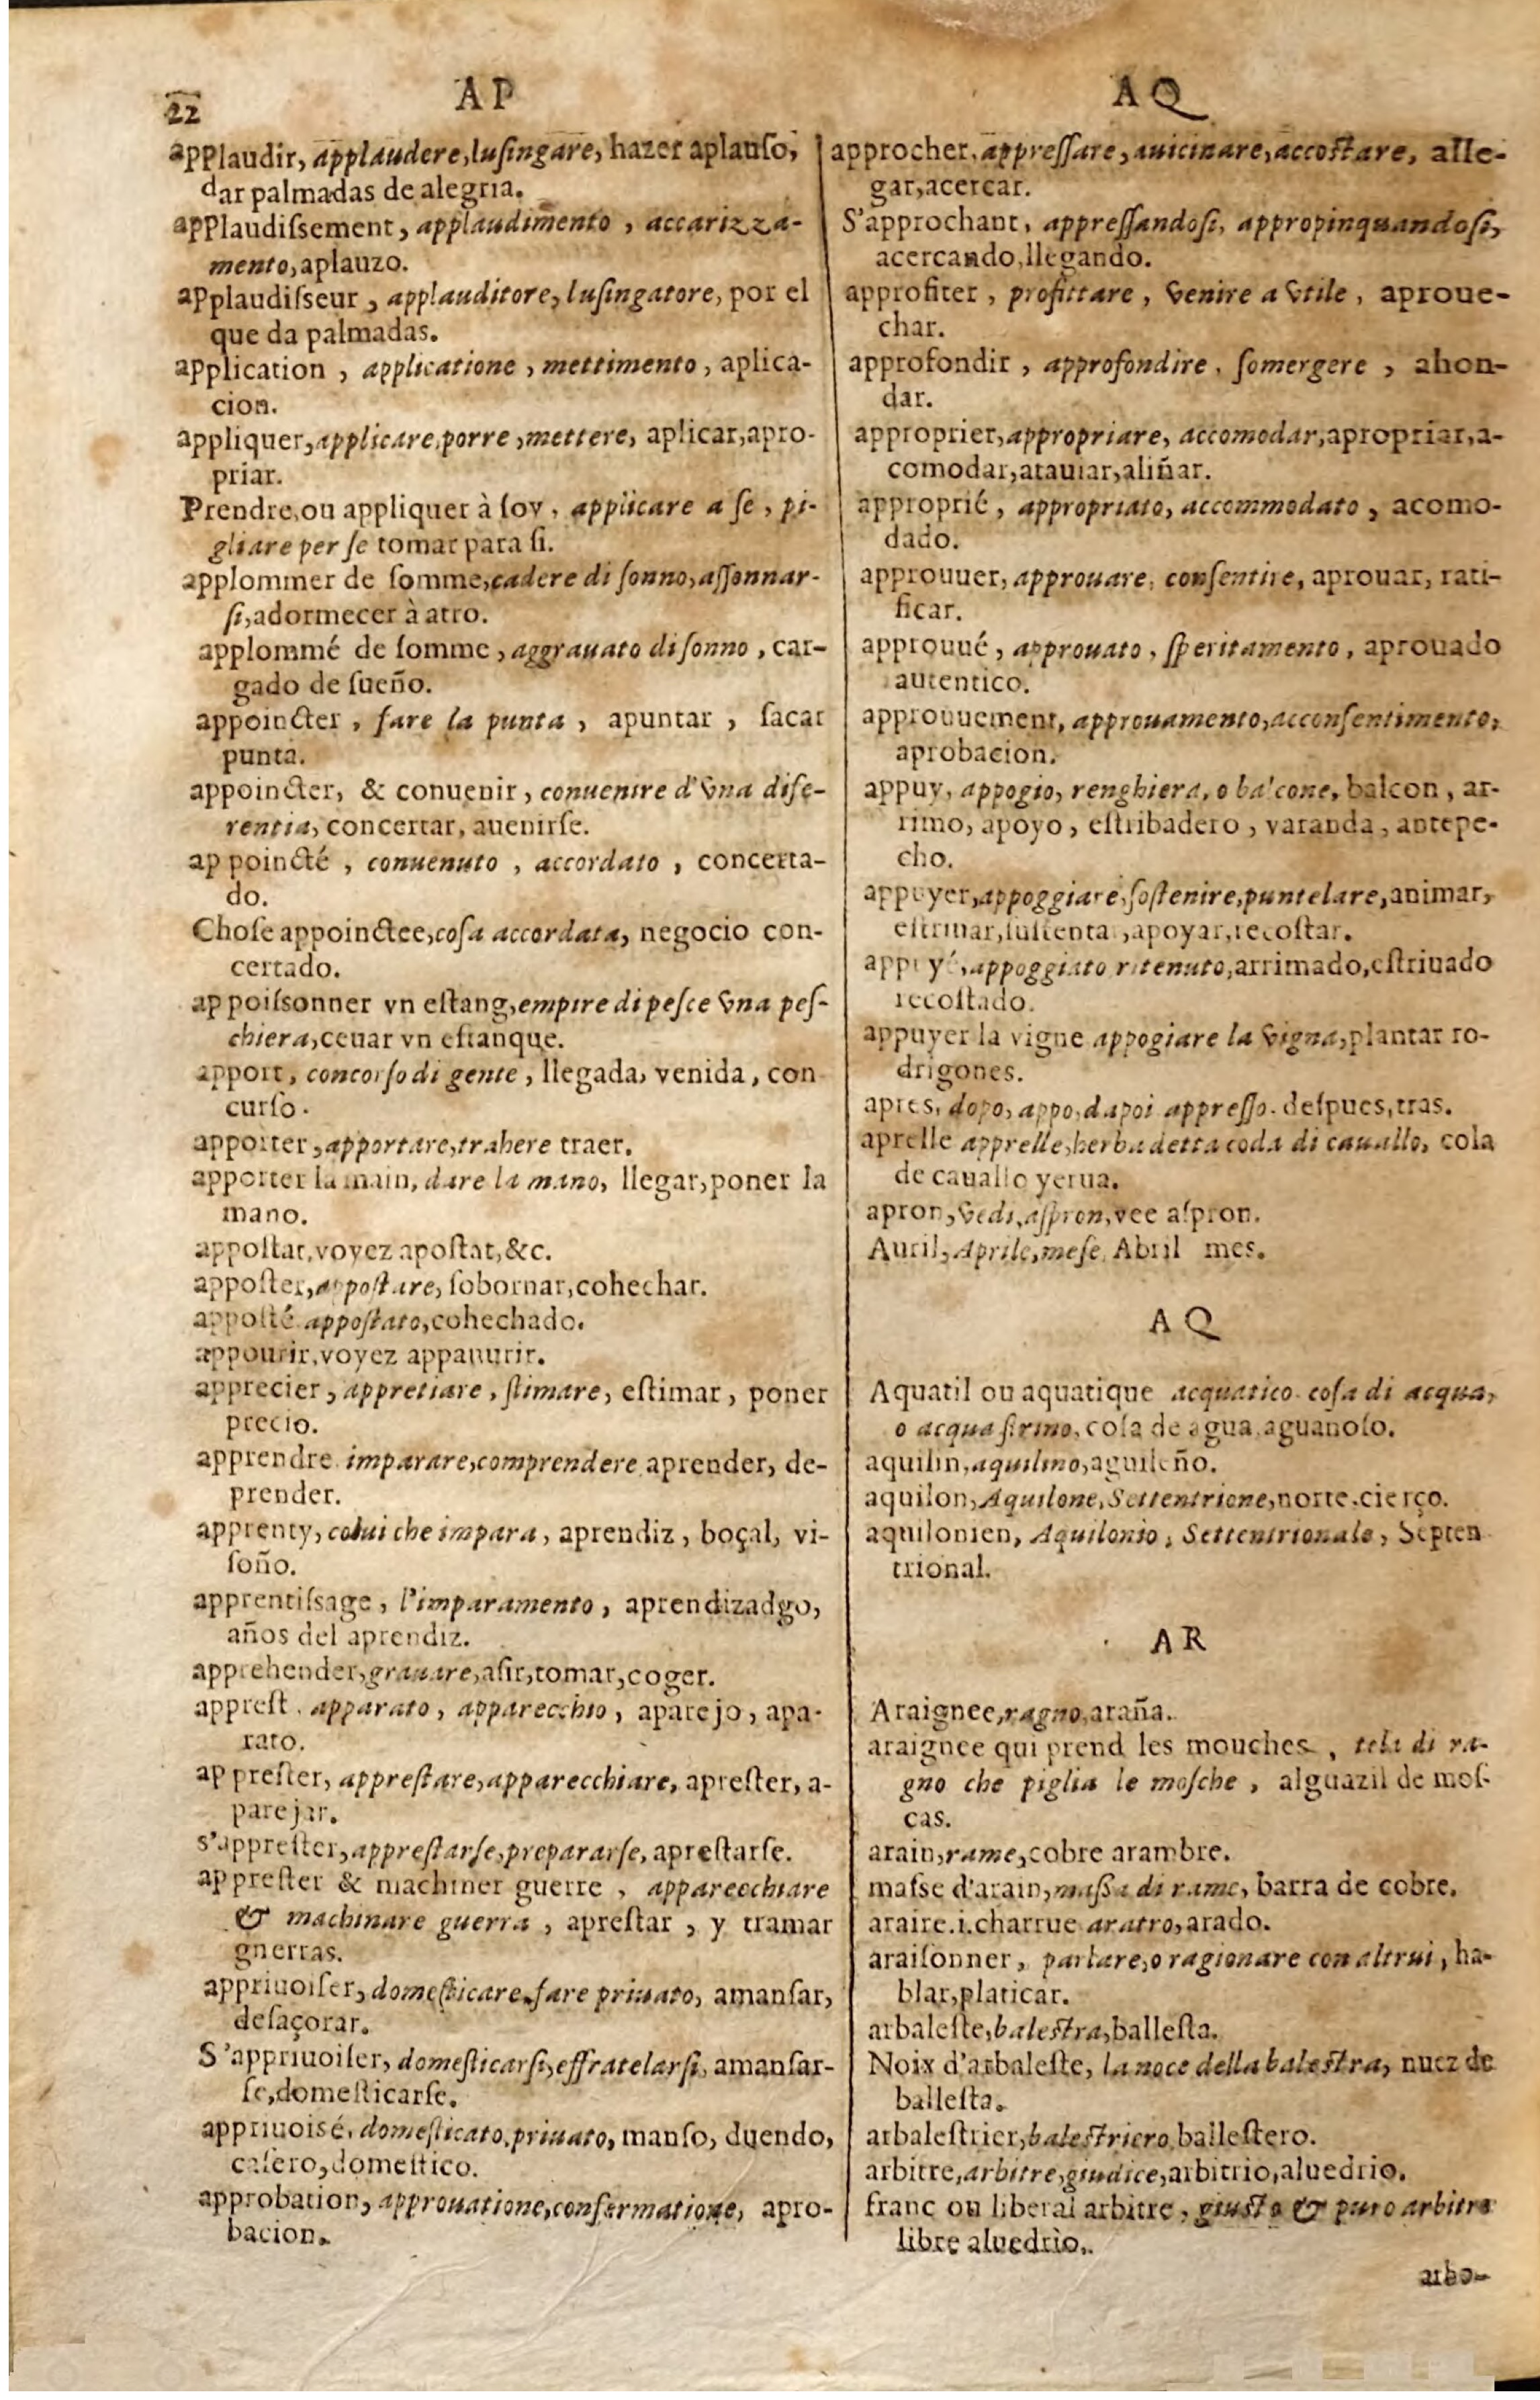 22 AP AQ
applaudir, applaudere, luſingare, hazer aplauſo,
dar palmadas de alegria.
applaudiſsement, applaudimento, accarizza-
mento, aplauzo.
applaudiſseur, applauditore, luſingatore, por el
que da palmadas.
application, applicatione, mettimento, aplica-
cion.
appliquer, applicare, porre, mettere, aplicar, apro-
priar.
Prendre, ou appliquer à ſoy, applicare a ſe, pi-
gliare per ſe tomar para ſi.
applommer de ſomme, cadere di ſonno, aſſonnar-
ſi, adormecer à atro.
applommé de ſomme, aggrauato di ſonno, car-
gado de ſueño.
appoincter, fare la punta, apuntar, ſacar
punta.
appoincter, & conuenir, conuenire d'vna dife-
rentia, concertar, auenirſe.
appoincté, conuenuto, accordato, concerta-
do.
Choſe appoinctee, coſa accordata, negocio con-
certado.
appoiſsonner vn eſtang, empire di peſce vna peſ-
chiera, ceuar vn eſtanque.
apport, concorſo di gente, llegada, venida, con
curſo.
apporter, apportare, trahere traer.
apporter la main, dare la mano, llegar, poner la
mano.
appoſtat, voyez apoſtat, &c.
appoſter, appoſtare, ſobornar, cohechar.
appoſté appoſtato, cohechado.
appourir, voyez appauurir.
apprecier, appretiare, ſtimare, eſtimar, poner
precio.
apprendre imparare, comprendere aprender, de-
prender.
apprenty, colui che impara, aprendiz, boçal, vi-
ſoño.
apprentiſsage, l'imparamento, aprendizadgo,
años del aprendiz.
apprehender, grauare, aſir, tomar, coger.
appreſt. apparato, apparecchio, aparejo, apa-
rato.
appreſter, appreſtare, apparecchiare, apreſter, a-
parejar.
s'appreſter, appreſtarſe, prepararſe, apreſtarſe.
appreſter & machiner guerre, apparecchiare
& machinare guerra, apreſtar, y tramar
gnerras.
appriuoiſer, domeſticare, fare priuato, amanſar,
deſaçorar.
S'appriuoiſer, domeſticarſi, effratelarſi, amanſar-
ſe, domeſticarſe.
appriuoisé, domeſticato, priuato, manſo, duendo,
caſero, domeſtico.
approbation, approuatione, confermatione, apro-
bacion.
approcher, appreſſare, auicinare, accoſtare, alle-
gar, acercar.
S'approchant, appreſſandoſi, appropinquandoſi,
acercando, llegando.
approfiter, profittare, venire a vtile, aproue-
char.
approfondir, approfondire, ſomergere, ahon-
dar.
approprier, appropriare, accomodar, apropriar, a-
comodar, atauiar, aliñar.
approprié, appropriato, accommodato, acomo-
dado.
approuuer, approuare, conſentire, aprouar, rati-
ficar.
approuué, approuato, ſperitamento, aprouado
autentico.
approuuement, approuamento, acconſentimento,
aprobacion.
appuy, appogio, renghiera, o balcone, balcon, ar-
rimo, apoyo, eſtribadero, varanda, antepe-
cho.
appuyer, appoggiare, ſoſtenire, puntelare, animar,
eſtriuar, ſuſtentar, apoyar, recoſtar.
appuyé, appoggiato ritenuto, arrimado, eſtriuado
recoſtado.
appuyer la vigne appogiare la vigna, plantar ro-
drigones.
apres, dopo, appo, dapoi appreſſo. deſpues, tras.
aprelle apprelle, herba detta coda di cauallo, cola
de cauallo yerua.
apron, vedi, aſpron, vee aſpron.
Auril, Aprile, meſe, Abril mes.
AQ
Aquatil ou aquatique acquatico. coſa di acqua,
o acquaſtrino, coſa de agua, aguanoſo.
aquilin, aquilino, aguileño.
aquilon, Aquilone, Settentrione, norte, cierço.
aquilonien, Aquilonio, Settentrionale, Septen
trional.
AR
Araignee, ragno, araña.
araignee qui prend les mouches, tela di ra-
gno che piglia le moſche, alguazil de moſ-
cas.
arain, rame, cobre arambre.
maſse d'arain, maſſa di rame, barra de cobre.
araire.i.charrue aratro, arado.
araiſonner, parlare, o ragionare con altrui, ha-
blar, platicar.
arbaleſte, baleſtra, balleſta.
Noix d'arbaleſte, la noce della baleſtra, nuez de
balleſta.
arbaleſtrier, baleſtriero balleſtero.
arbitre, arbitre, giudice, arbitrio, aluedrio.
franc ou liberal arbitre, giusto & puro arbitro
libre aluedrio.
arbo-